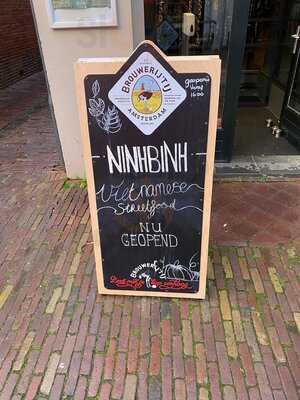 BROUWERIJ 'T IJ
AMSTERDAM
geopend
vanaf
16:00
NINHBINH
Vietnamese
Streetfood
NU
GEOPEND
BROUWERIJ 'T IJ